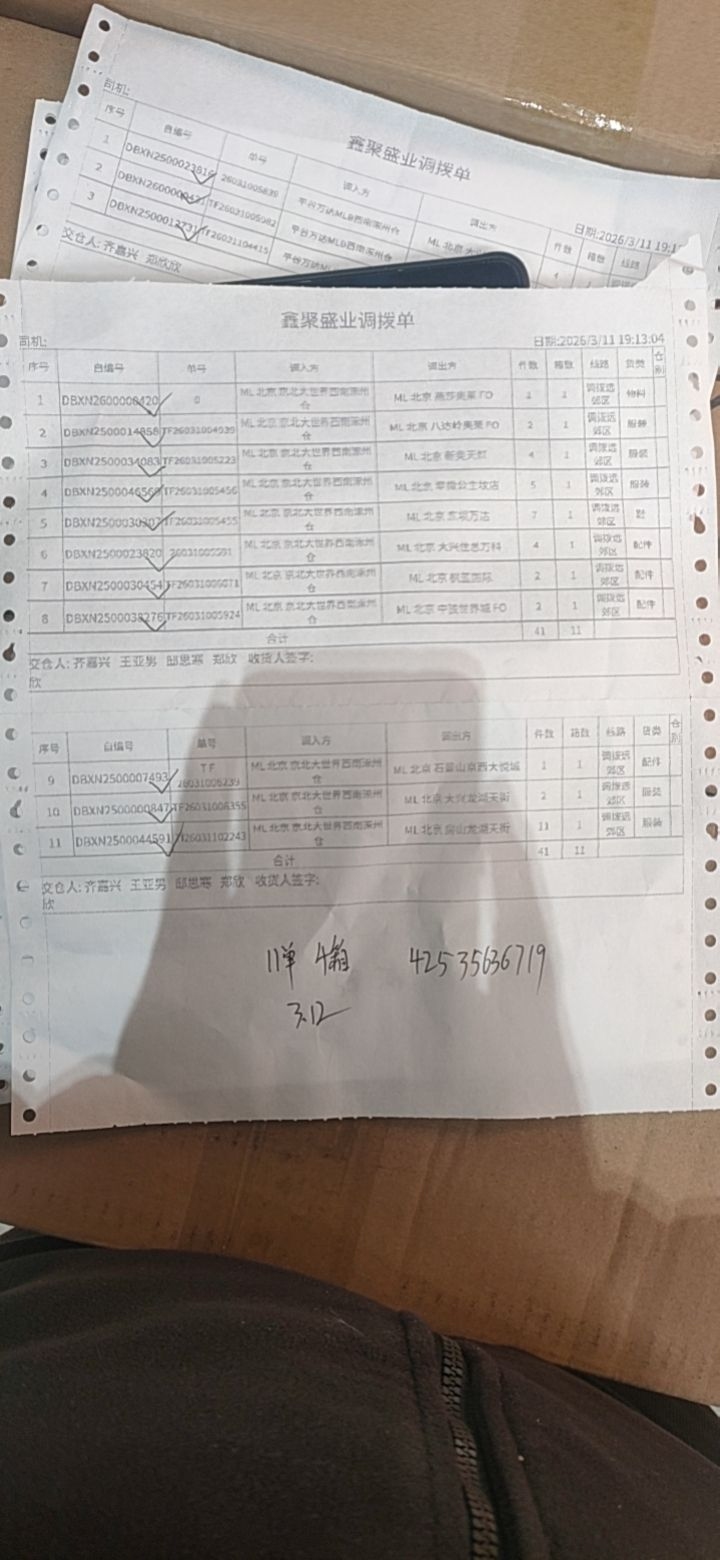 司机:
鑫聚盛业调拨单
日期:2026/3/11 19:1
序号 自编号 单号 调入方 调出方 件数 箱数 线路
1 DBXN2500023816 26031005839 平谷万达MLB西南涿州仓 ML 北京
2 DBXN2600000421 TF26031005982 平谷万达MLB西南涿州仓
3 DBXN2500012731 TF26031104415 平谷万达
交仓人: 齐嘉兴 郑欣欣
鑫聚盛业调拨单
司机: 日期:2026/3/11 19:13:04
序号 自编号 单号 调入方 调出方 件数 箱数 线路 货类 仓别
1 DBXN2600000420 0 ML 北京 京北大世界西南涿州仓 ML 北京 燕莎奥莱 FO 1 1 调拨远郊区 物料
2 DBXN2500014858 TF26031004939 ML 北京 京北大世界西南涿州仓 ML 北京 八达岭奥莱 FO 2 1 调拨远郊区 服装
3 DBXN2500034083 TF26031005223 ML 北京 京北大世界西南涿州仓 ML 北京 新奥天虹 4 1 调拨远郊区 服装
4 DBXN2500046568 TF26031005456 ML 北京 京北大世界西南涿州仓 ML 北京 公主坟店 5 1 调拨远郊区 服装
5 DBXN2500030307 TF26031005455 ML 北京 京北大世界西南涿州仓 ML 北京 东坝万达 7 1 调拨远郊区 鞋
6 DBXN2500023820 26031005591 ML 北京 京北大世界西南涿州仓 ML 北京 大兴住总万科 4 1 调拨远郊区 配件
7 DBXN2500030454 TF26031006071 ML 北京 京北大世界西南涿州仓 ML 北京 枫蓝国际 2 1 调拨远郊区 配件
8 DBXN2500038276 TF26031005924 ML 北京 京北大世界西南涿州仓 ML 北京 中骏世界城 FO 2 1 调拨远郊区 配件
合计 41 11
交仓人: 齐嘉兴 王亚男 邸思寒 郑欣 收货人签字:
欣
序号 自编号 单号 调入方 调出方 件数 箱数 线路 货类 仓别
9 DBXN2500007493 TF26031006239 ML 北京 京北大世界西南涿州仓 ML 北京 石景山京西大悦城 1 1 调拨远郊区 配件
10 DBXN2500000847 TF26031006355 ML 北京 京北大世界西南涿州仓 ML 北京 大兴龙湖天街 2 1 调拨远郊区 服装
11 DBXN2500044591 TF26031102243 ML 北京 京北大世界西南涿州仓 ML 北京 房山龙湖天街 11 1 调拨远郊区 服装
合计 41 11
交仓人: 齐嘉兴 王亚男 邸思寒 郑欣 收货人签字:
欣
11单 4箱 42535636719
3.12